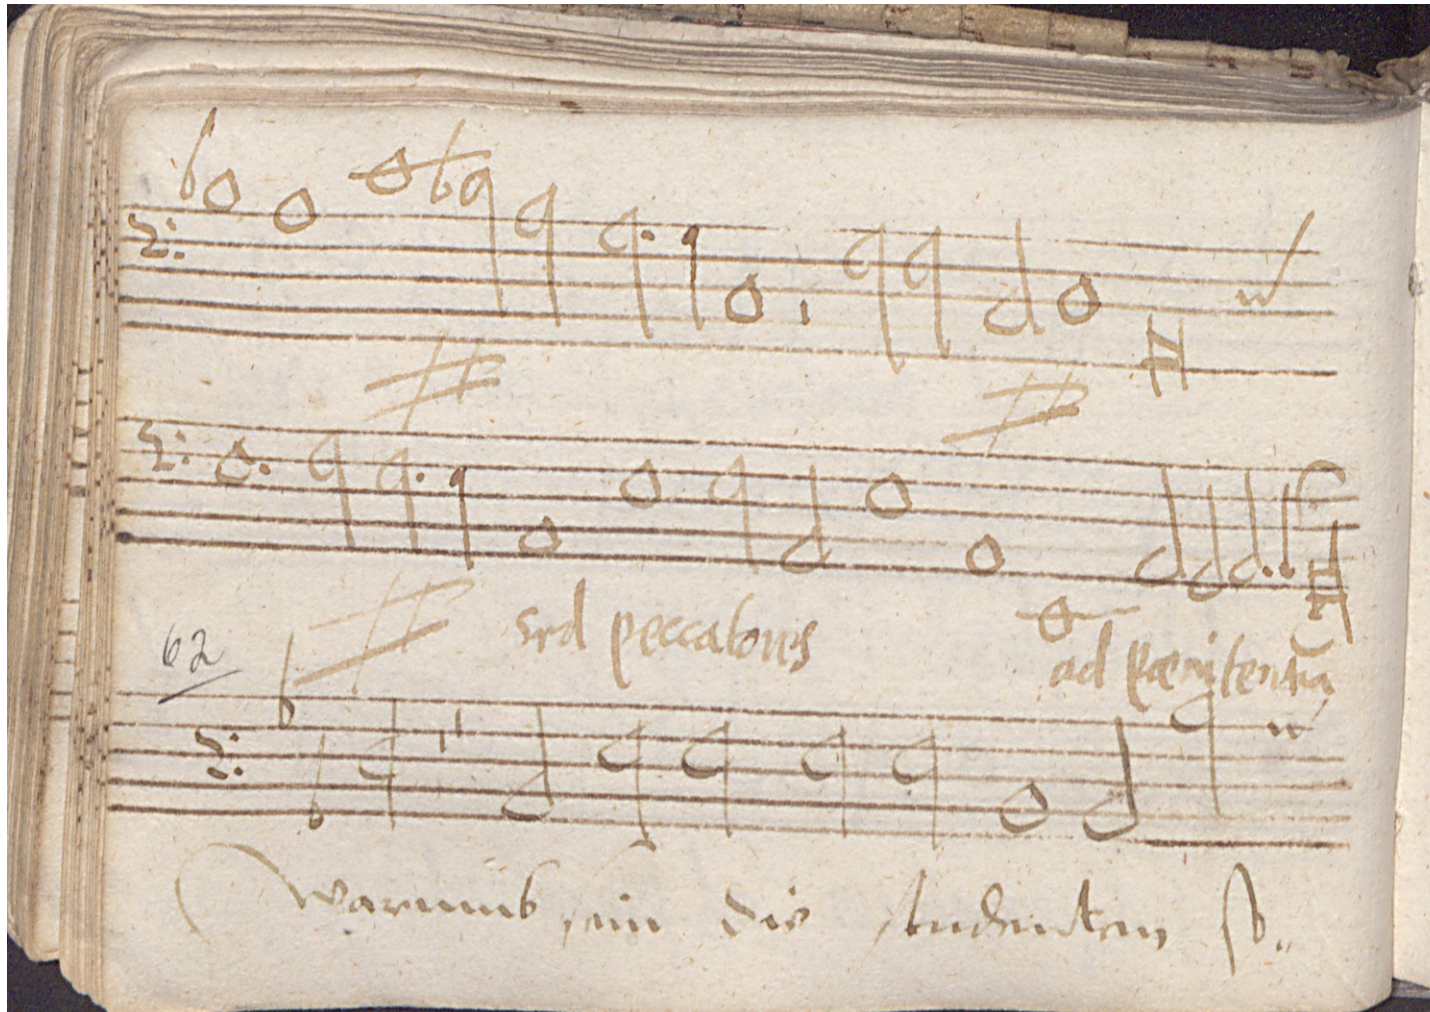 sed peccatores
ad pœnitentiā
62
Warumb sein die studenten so